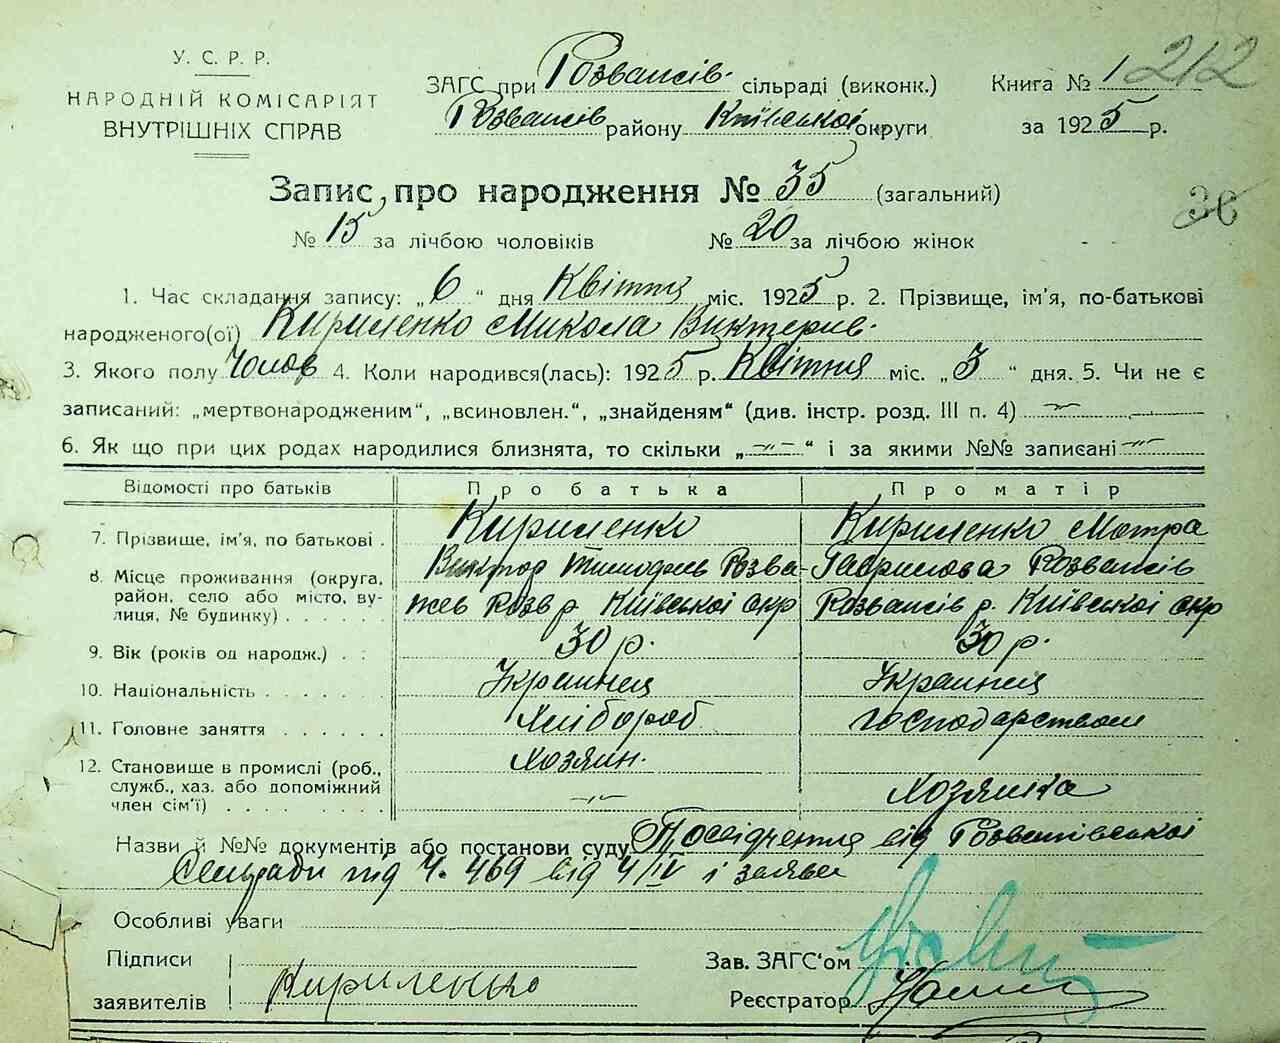 У. С. Р. Р.
НАРОДНІЙ КОМІСАРІЯТ
ВНУТРІШНІХ СПРАВ
ЗАГС при Розважів. сільраді (виконк.)
Розважів району Київської округи
Книга № 1 212
за 1925 р.
Запис про народження № 35 (загальний)
36
№ 15 за лічбою чоловіків № 20 за лічбою жінок
1. Час складання запису: „6“ дня Квіття міс. 1925 р. 2. Прізвище, ім'я, по-батькові
народженого(ої) Кириленко Микола Викторив.
3. Якого полу Чолов 4. Коли народився(лась): 1925 р. Квіття міс. „3“ дня. 5. Чи не є
записаний: „мертвонародженим“, „всиновлен.“, „знайденям“ (див. інстр. розд. III п. 4) —〃—
6. Як що при цих родах народилися близнята, то скільки „—〃—“ і за якими №№ записані —〃—
Відомості про батьків Про батька Про матір
7. Прізвище, ім'я, по батькові . Кириленко Кириленко Мотра
8. Місце проживання (округа, район, село або місто, вулиця, № будинку) . . . . . Виктор Розва-
жев Розв р. Київської окр Гаврилова Розважів
Розважів р. Київської окр
9. Вік (років од народж.) . : 30 р. 30 р.
10. Національність . . . . . . Украинец Украинка
11. Головне заняття . . . . . . Хлібороб господарством
12. Становище в промислі (роб., служб., хаз. або допоміжний член сім'ї) . . . . . . . . Хозяин. —〃— Хозяйка
Назви й №№ документів або постанови суду Посвідчення від Розважівської
Сельради під Ч. 469 від 4/IV і заява
Особливі уваги
Підписи
заявителів Кириленко
Зав. ЗАГС'ом
Реєстратор